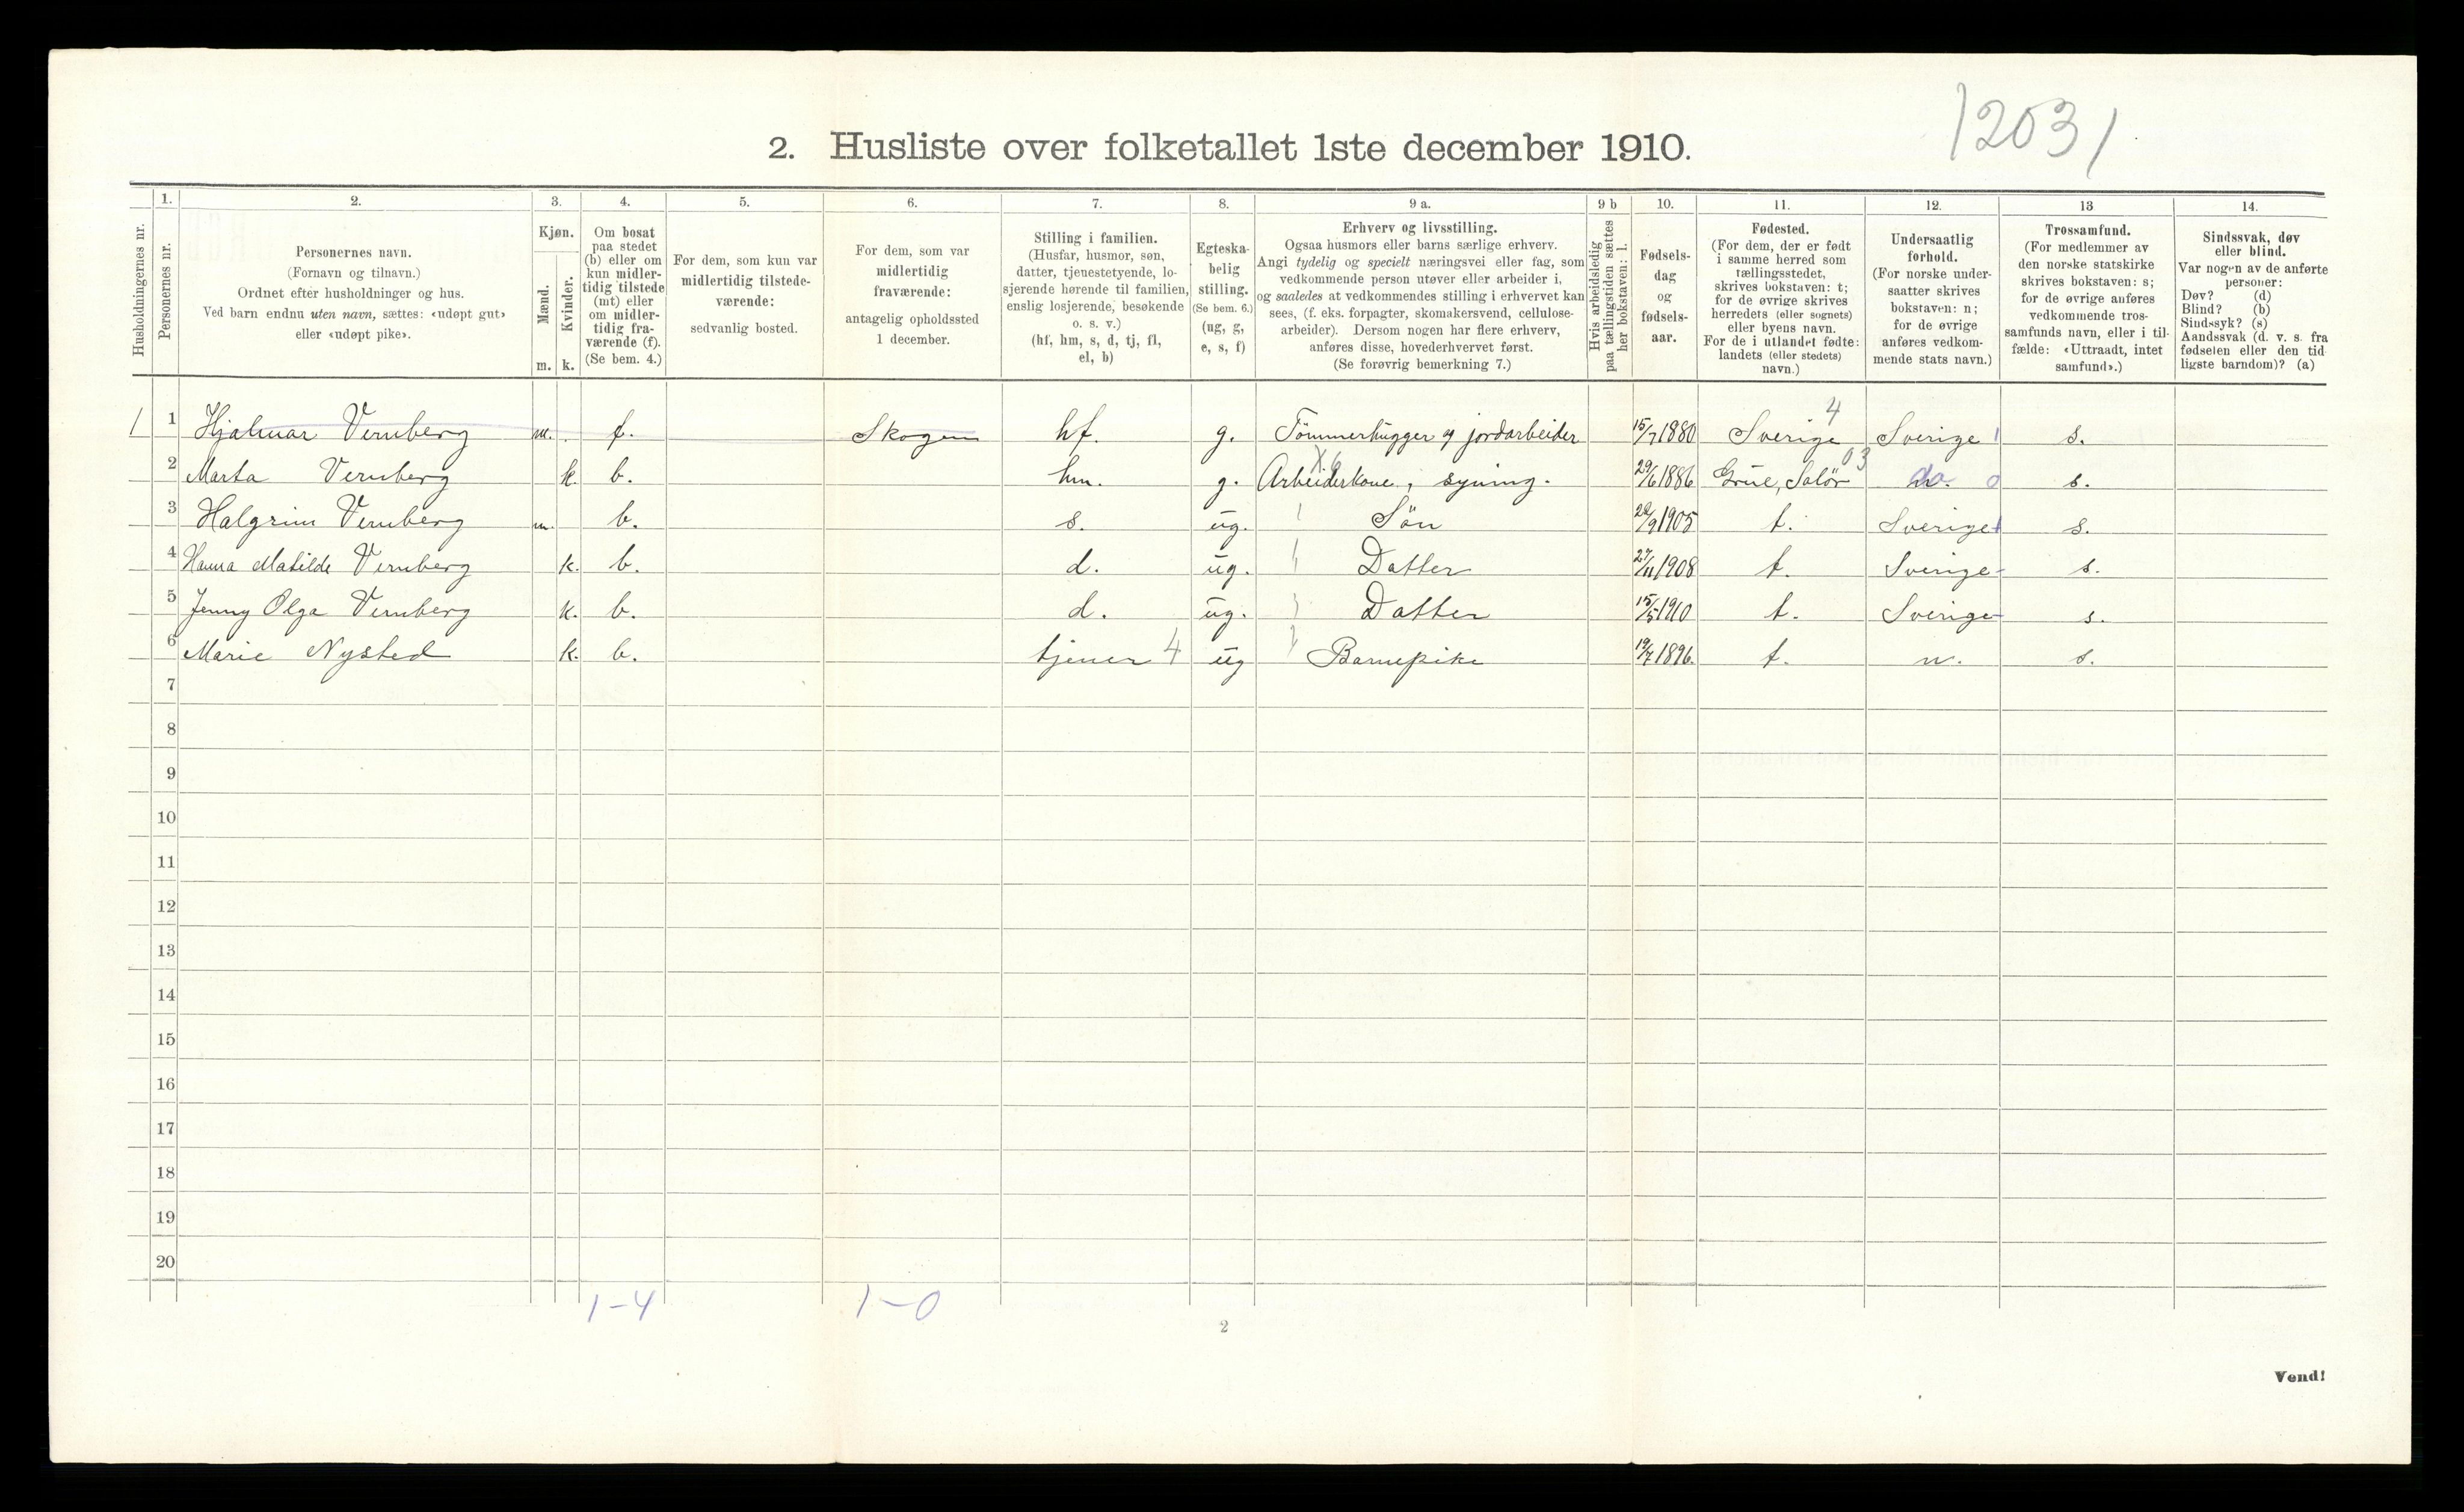 12031
2. Husliste over folketallet 1ste december 1910.
Husholdningernes nr.
1.
Personernes nr.
2.
Personernes navn.
(Fornavn og tilnavn.)
Ordnet efter husholdninger og hus.
Ved barn endnu uten navn, sættes: «udøpt gut»
eller «udøpt pike».
3.
Kjøn.
Mænd.
m.
Kvinder.
k.
4.
Om bosat
paa stedet
(b) eller om
kun midler-
tidig tilstede
(mt) eller
om midler-
tidig fra-
værende (f).
(Se bem. 4.)
5.
For dem, som kun var
midlertidig tilstede-
værende:
sedvanlig bosted.
6.
For dem, som var
midlertidig
fraværende:
antagelig opholdssted
1 december.
7.
Stilling i familien.
(Husfar, husmor, søn,
datter, tjenestetyende, lo-
sjerende hørende til familien,
enslig losjerende, besøkende
o. s. v.)
(hf, hm, s, d, tj, fl,
el, b)
8.
Egteska-
belig
stilling.
(Se bem. 6.)
(ug, g,
e, s, f)
9 a.
Erhverv og livsstilling.
Ogsaa husmors eller barns særlige erhverv.
Angi tydelig og specielt næringsvei eller fag, som
vedkommende person utøver eller arbeider i,
og saaledes at vedkommendes stilling i erhvervet kan
sees, (f. eks. forpagter, skomakersvend, cellulose-
arbeider). Dersom nogen har flere erhverv,
anføres disse, hovederhvervet først.
(Se forøvrig bemerkning 7.)
9 b
Hvis arbeidsledig
paa tællingstiden sættes
her bokstaven: l.
10.
Fødsels-
dag
og
fødsels-
aar.
11.
Fødested.
(For dem, der er født
i samme herred som
tællingsstedet,
skrives bokstaven: t;
for de øvrige skrives
herredets (eller sognets)
eller byens navn.
For de i utlandet fødte:
landets (eller stedets)
navn.)
12.
Undersaatlig
forhold.
(For norske under-
saatter skrives
bokstaven: n;
for de øvrige
anføres vedkom-
mende stats navn.)
13
Trossamfund.
(For medlemmer av
den norske statskirke
skrives bokstaven: s;
for de øvrige anføres
vedkommende tros-
samfunds navn, eller i til-
fælde: «Uttraadt, intet
samfund».)
14.
Sindssvak, døv
eller blind.
Var nogen av de anførte
personer:
Døv? (d)
Blind? (b)
Sindssyk? (s)
Aandssvak (d. v. s. fra
fødselen eller den tid
ligste barndom)? (a)
4
1 1 Hjalmar Vernberg m. f. Skogen hf. g. Tömmerhugger og jordarbeider 15/7 1880 Sverige Sverige 1 s.
X6 03
2 Marta Vernberg k. b. hm. g. Arbeiderkone, syning. 29/6 1886 Grue, Solör do. 0 s.
3 Halgrim Vernberg m. b. s. ug. Sön 22/9 1905 t. Sverige s.
4 Hanna Matilde Vernberg k. b. d. ug. Datter 27/11 1908 t. Sverige s.
5 Jenny Olga Vernberg k. b. d. ug. Datter 15/5 1910 t. Sverige s.
6 Marie Nysted k. b. tjener 4 ug Barnepike 19/7 1896. t. n. s.
7
8
9
10
11
12
13
14
15
16
17
18
19
20
1-4 1-0
2
Vend!